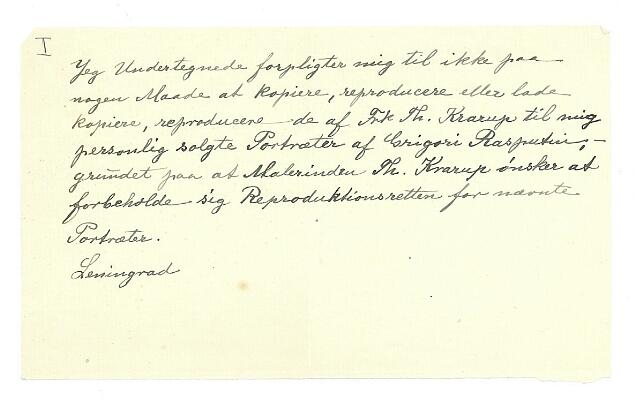 I
Jeg Undertegnede forpligter mig til ikke paa
nogen Maade at kopiere, reproducere eller lade
kopiere, reproducere de af Frk Th. Krarup til mig
personlig solgte Portræter af Grigori Rasputin, –
grundet paa at Malerinden Th. Krarup ønsker at
forbeholde sig Reproduktionsretten for nævnte
Portræter.
Leningrad